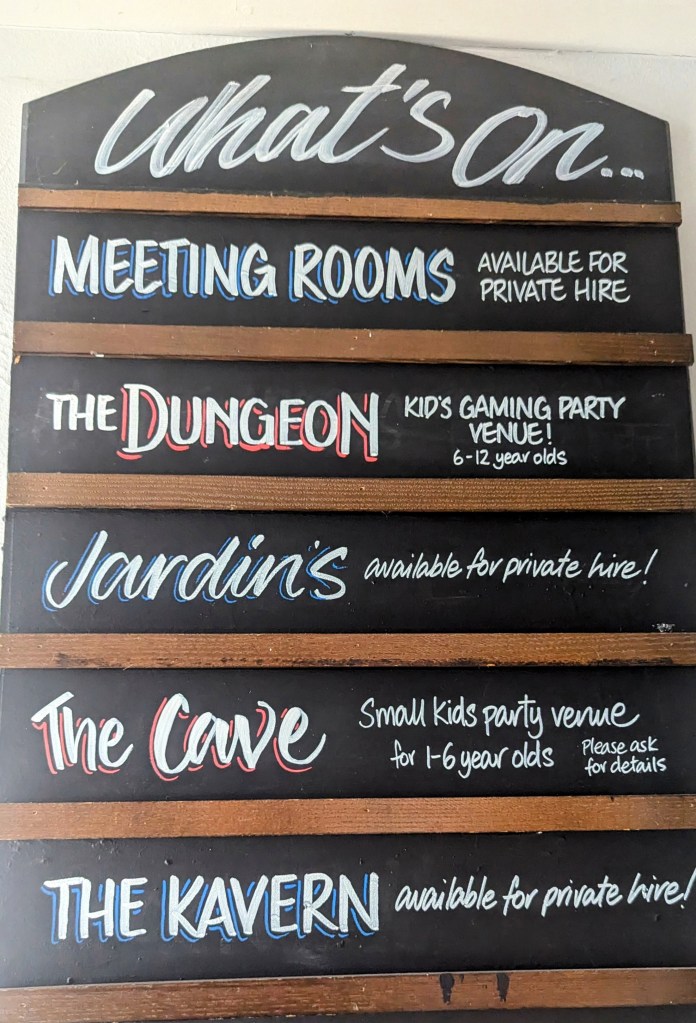 What's On...
MEETING ROOMS
AVAILABLE FOR
PRIVATE HIRE
THE DUNGEON
KID'S GAMING PARTY
VENUE!
6-12 year olds
Jardin's available for private hire!
The Cave
Small kids party venue
for 1-6 year olds
Please ask
for details
THE KAVERN available for private hire!